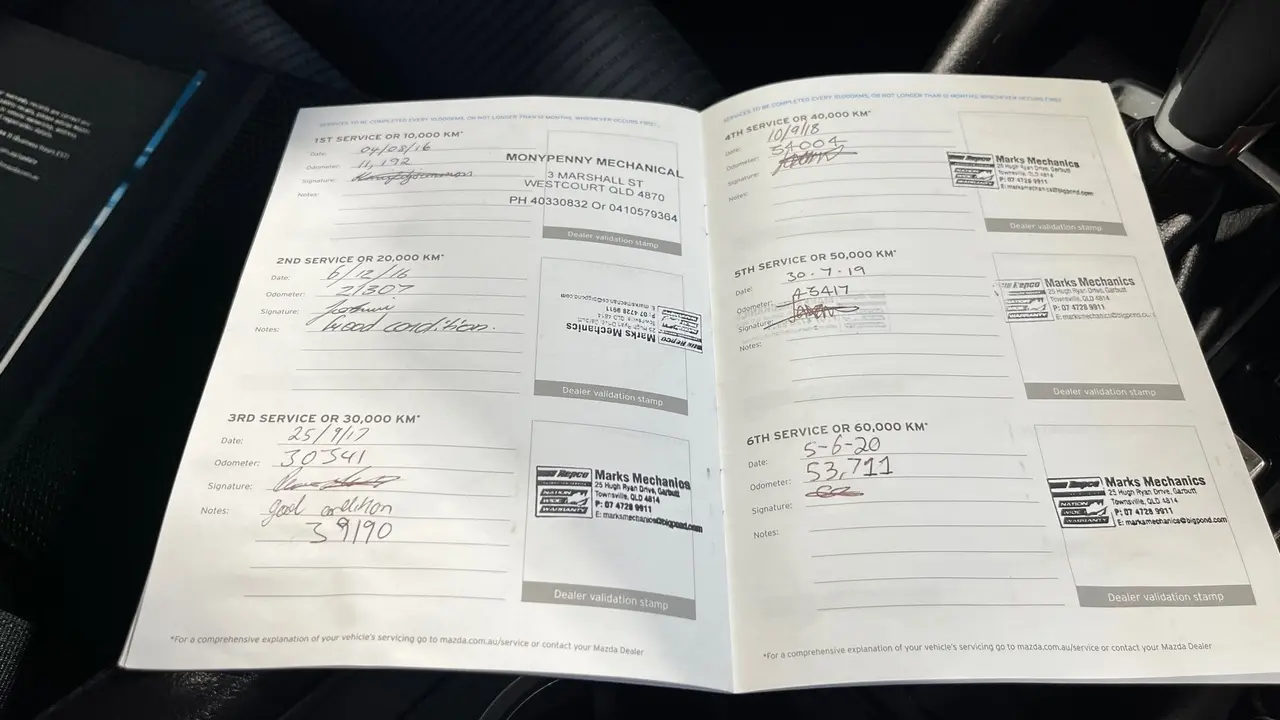 SERVICES TO BE COMPLETED EVERY 10,000KMS, OR NOT LONGER THAN 12 MONTHS, WHICHEVER OCCURS FIRST.
1ST SERVICE OR 10,000 KM*
Date: 04/08/16
Odometer: 11,192
Signature:
Notes:
MONYPENNY MECHANICAL
3 MARSHALL ST
WESTCOURT QLD 4870
PH 40330832 Or 0410579364
Dealer validation stamp
2ND SERVICE OR 20,000 KM*
Date: 6/12/16
Odometer: 21307
Signature:
Notes: Good condition.
Repco
Marks Mechanics
25 Hugh Ryan Drive, Garbutt
Townsville, QLD 4814
P: 07 4728 9911
E: marksmechanics@bigpond.com
Dealer validation stamp
3RD SERVICE OR 30,000 KM*
Date: 25/9/17
Odometer: 30341
Signature:
Notes: good condition
39190
Repco
NATION
WIDE
WARRANTY
Marks Mechanics
25 Hugh Ryan Drive, Garbutt
Townsville, QLD 4814
P: 07 4728 9911
E: marksmechanics@bigpond.com
Dealer validation stamp
*For a comprehensive explanation of your vehicle's servicing go to mazda.com.au/service or contact your Mazda Dealer
SERVICES TO BE COMPLETED EVERY 10,000KMS, OR NOT LONGER THAN 12 MONTHS, WHICHEVER OCCURS FIRST.
4TH SERVICE OR 40,000 KM*
Date: 10/9/18
Odometer: 54004
Signature:
Notes:
Repco
NATION
WIDE
WARRANTY
Marks Mechanics
25 Hugh Ryan Drive, Garbutt
Townsville, QLD 4814
P: 07 4728 9911
E: marksmechanics@bigpond.com
Dealer validation stamp
5TH SERVICE OR 50,000 KM*
Date: 30-7-19
Odometer:
Signature:
Notes:
Repco
NATION
WIDE
WARRANTY
Marks Mechanics
25 Hugh Ryan Drive, Garbutt
Townsville, QLD 4814
P: 07 4728 9911
E: marksmechanics@bigpond.cu
Dealer validation stamp
6TH SERVICE OR 60,000 KM*
Date: 5-6-20
Odometer: 53,711
Signature:
Notes:
Repco
NATION
WIDE
WARRANTY
Marks Mechanics
25 Hugh Ryan Drive, Garbutt
Townsville, QLD 4814
P: 07 4728 9911
E: marksmechanics@bigpond.com
Dealer validation stamp
*For a comprehensive explanation of your vehicle's servicing go to mazda.com.au/service or contact your Mazda Dealer